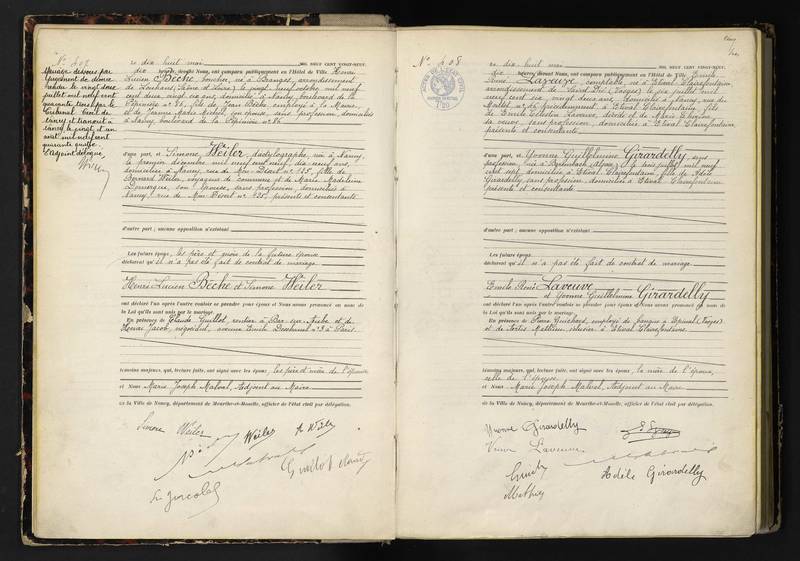 N° 407
Mariage dissous par
jugement de divorce
rendu le vingt deux
juillet mil neuf cent
quarante trois par le
Tribunal Civil de
Nancy et transcrit à
Nancy le vingt d'un
août mil neuf cent
quarante quatre
L'Adjoint délégué,
Le dix huit mai MIL NEUF CENT VINGT-NEUF,
dix heures, devant Nous, ont comparu publiquement en l'Hôtel de Ville Henri
Lucien Bèche, boucher, né à Branges, arrondissement
de Louhans (Saône et Loire) le vingt neuf octobre mil neuf
cent deux, vingt six ans, domicilié à Nancy, boulevard de la
Pépinière n° 86, fils de Jean Bèche employé à la Mairie,
et de Jeanne Marie Michel, son épouse, sans profession, domiciliés
à Nancy, boulevard de la Pépinière n° 86
d'une part, et Simone Weiler, dactylographe, née à Nancy,
le premier décembre mil neuf cent neuf, dix neuf ans,
domiciliée à Nancy, rue de Mon Désert n° 125, fille de
Bernard Weiler, voyageur de commerce et de Marie Madeleine
son épouse, sans profession, domiciliés à
Nancy, rue de Mon Désert n° 125, présents et consentants
d'autre part ; aucune opposition n'existant
Les futurs époux, les père et mère de la future épouse
déclarent qu'il n'a pas été fait de contrat de mariage
Henri Lucien Bèche et Simone Weiler
ont déclaré l'un après l'autre vouloir se prendre pour époux et Nous avons prononcé au nom de
la Loi qu'ils sont unis par le mariage.
En présence de Claude Guillot, rentier à Bar sur Aube et de
Henri Jacob, négociant, avenue Emile Deschanel n° 3 à Paris,
témoins majeurs, qui, lecture faite, ont signé avec les époux, les père et mère de l'épouse
et Nous Marie Joseph Malval, Adjoint au Maire
de la Ville de Nancy, département de Meurthe-et-Moselle, officier de l'état civil par délégation.
Simone Weiler
Weiler
Guillot
N° 408
Le dix huit mai MIL NEUF CENT VINGT-NEUF,
dix heures, devant Nous, ont comparu publiquement en l'Hôtel de Ville Emile
René Laveuve, comptable, né à Etival Clairefontaine,
arrondissement de Saint Dié (Vosges) le six juillet mil
neuf cent six, vingt deux ans, domicilié à Nancy, rue du
et précédemment à Etival Clairefontaine, fils
de Emile Célestin Laveuve, décédé et de Marie
sa veuve, sans profession, domiciliée à Etival Clairefontaine,
présente et consentante
d'une part, et Yvonne Guillelmine Girardelly, sans
profession, née à le trois juillet mil neuf
cent sept, domiciliée à Etival Clairefontaine, fille de Adèle
Girardelly, sans profession, domiciliée à Etival Clairefontaine
présente et consentante
d'autre part ; aucune opposition n'existant
Les futurs époux
déclarent qu'il n'a pas été fait de contrat de mariage
Emile René Laveuve
et Yvonne Guillelmine Girardelly
ont déclaré l'un après l'autre vouloir se prendre pour époux et Nous avons prononcé au nom de
la Loi qu'ils sont unis par le mariage.
En présence de Pierre Guichard, employé de banque à Epinal (Vosges)
et de à Etival Clairefontaine,
témoins majeurs, qui, lecture faite, ont signé avec les époux, la mère de l'époux,
celle de l'épouse
et Nous Marie Joseph Malval, Adjoint au Maire
de la Ville de Nancy, département de Meurthe-et-Moselle, officier de l'état civil par délégation.
Yvonne Girardelly
Laveuve
Adèle Girardelly